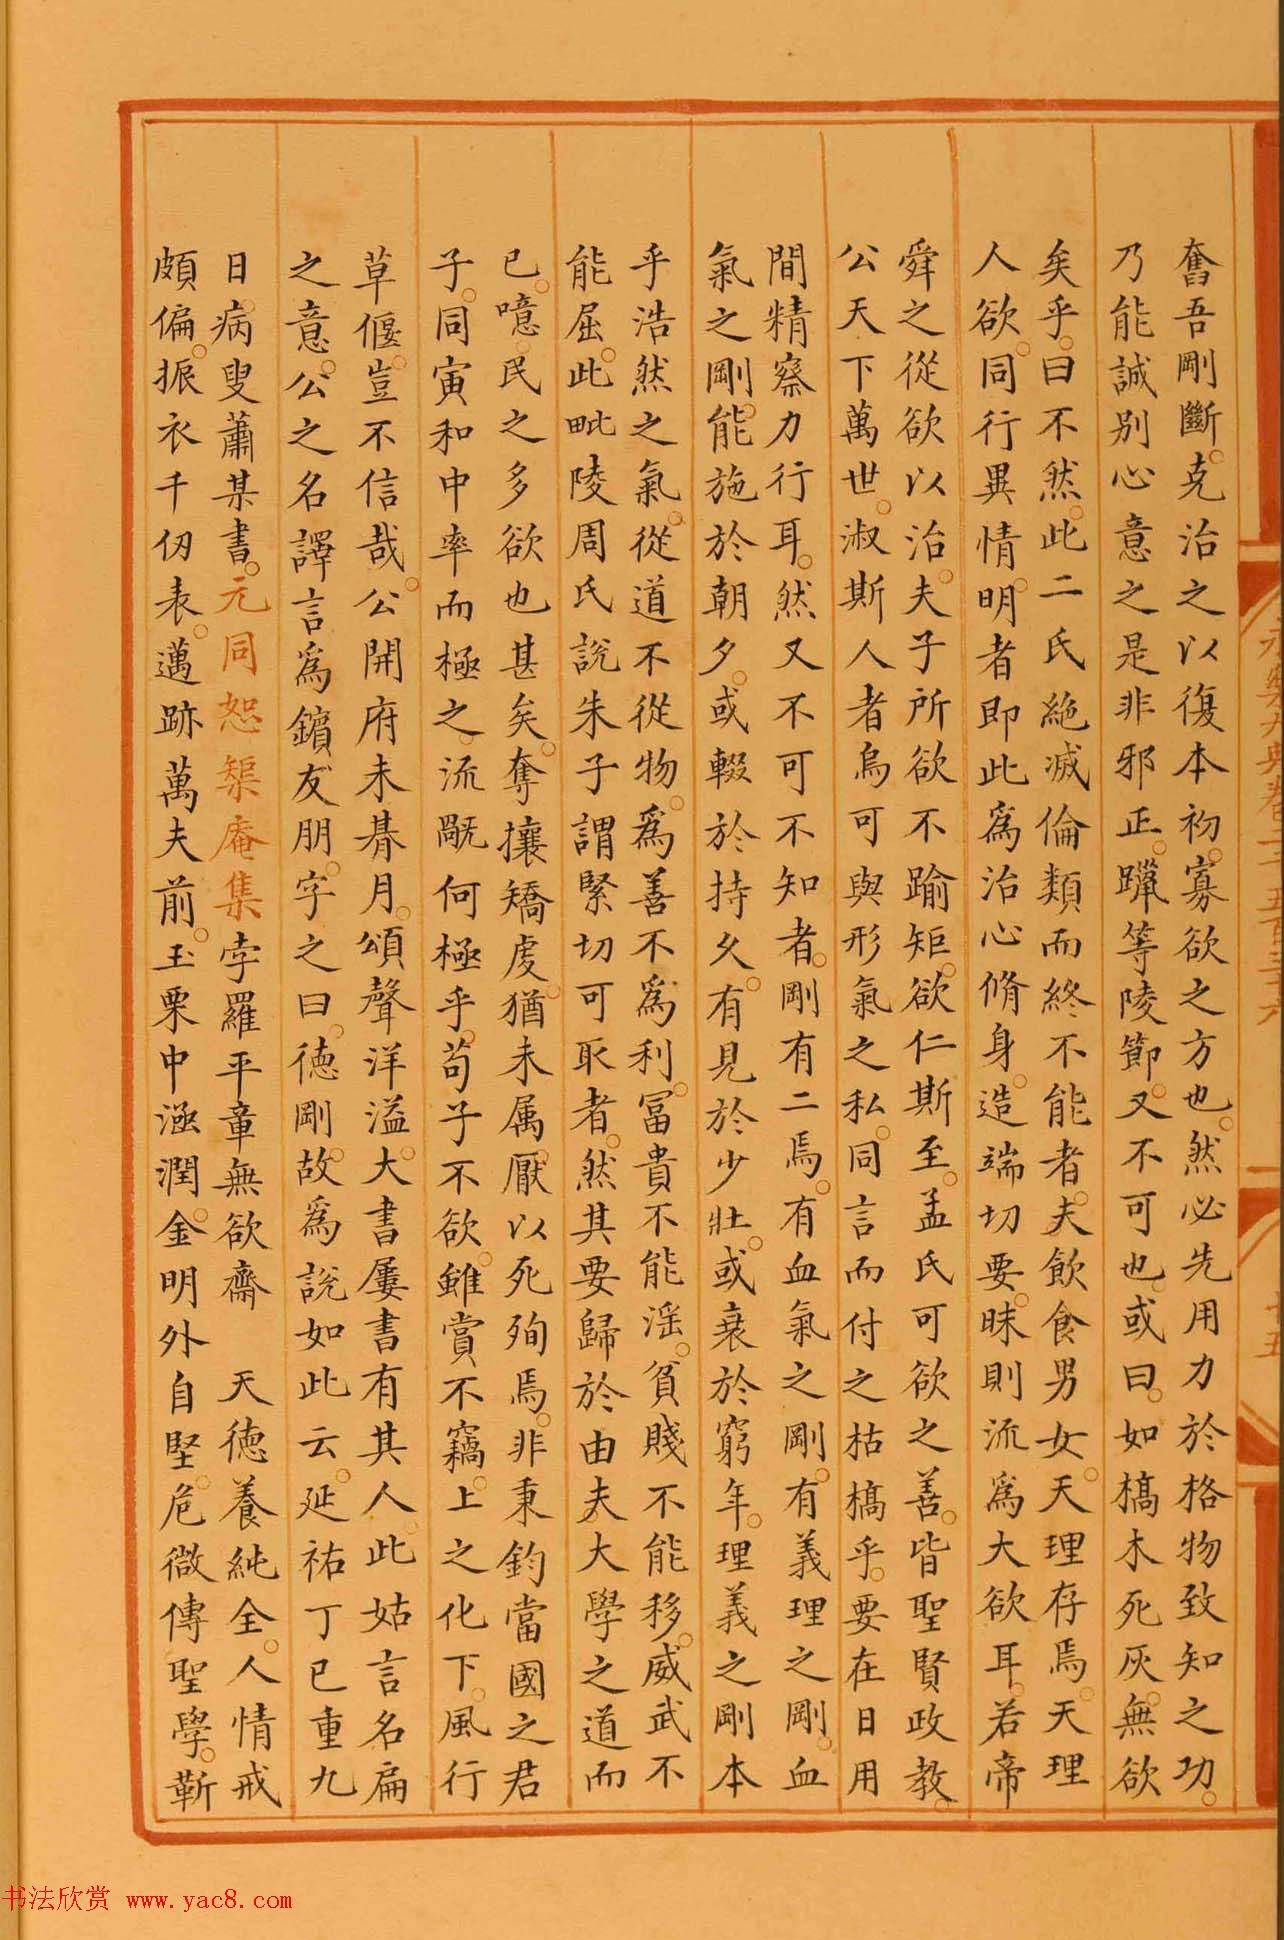 奮吾剛斷。克治之以復本初。寡欲之方也。然必先用力於格物致知之功。
乃能誠别心意之是非邪正。躐等陵節。又不可也。或曰。如槁木死灰。無欲
矣乎。曰不然。此二氏絶滅倫類而終不能者。夫飲食男女。天理存焉。天理
人欲。同行異情。明者即此為治心脩身。造端切要。昧則流為大欲耳。若帝
舜之從欲以治。夫子所欲不踰矩。欲仁斯至。孟氏可欲之善。皆聖賢政教。
公天下萬世。淑斯人者。烏可與形氣之私。同言而付之枯槁乎。要在日用
間精察力行耳。然又不可不知者。剛有二焉。有血氣之剛。有義理之剛。血
氣之剛。能施於朝夕。或輟於持久。有見於少壯。或衰於窮年。理義之剛本
乎浩然之氣。從道不從物。為善不為利。冨貴不能淫。貧賤不能移。威武不
能屈。此毗陵周氏說朱子謂緊切可取者。然其要歸於由夫。大學之道而
已。噫。民之多欲也甚矣。奪攘矯虔。猶未属厭。以死殉焉。非秉鈞當國之君
子。同寅和中率而極之。流翫何極乎。苟子不欲。雖賞不竊。上之化下。風行
草偃。豈不信哉。公開府未朞月。頌聲洋溢。大書屢書有其人。此姑言名扁
之意。公之名譯言為鑌友朋。字之曰。德剛。故為說如此云。延祐丁巳重九
日。病叟蕭某書。元同恕榘庵集 孛羅平章無欲齋 天德養純全。人情戒
頗偏。振衣千仞表。邁跡萬夫前。玉栗中涵潤。金明外自堅。危微傳聖學。靳
書法欣赏 www.yac8.com